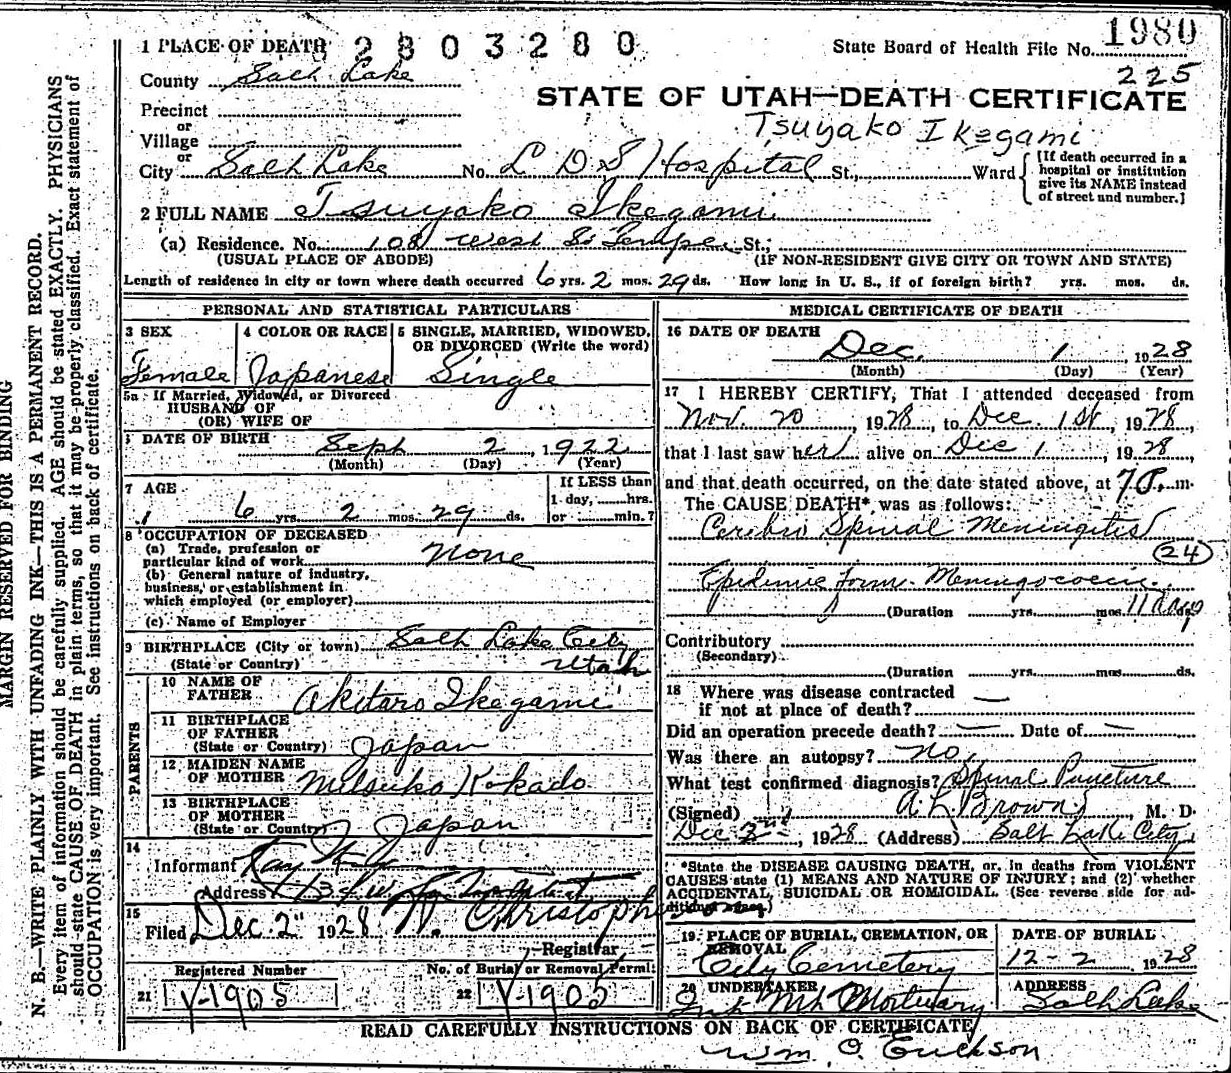 1 PLACE OF DEATH 2803280
State Board of Health File No. 1980
225
County Salt Lake
STATE OF UTAH—DEATH CERTIFICATE
Precinct
or
Tsuyako Ikegami
Village
or
City Salt Lake No. L D S Hospital St., Ward
[If death occurred in a
hospital or institution
give its NAME instead
of street and number.]
2 FULL NAME Tsuyako Ikegami
(a) Residence. No. 108 West So Temple St.;
(USUAL PLACE OF ABODE) (IF NON-RESIDENT GIVE CITY OR TOWN AND STATE)
Length of residence in city or town where death occurred 6 yrs. 2 mos. 29 ds. How long in U. S., if of foreign birth? yrs. mos. ds.
PERSONAL AND STATISTICAL PARTICULARS
3 SEX
Female
4 COLOR OR RACE
Japanese
5 SINGLE, MARRIED, WIDOWED,
OR DIVORCED (Write the word)
Single
5a If Married, Widowed, or Divorced
HUSBAND OF
(OR) WIFE OF
DATE OF BIRTH Sept 2, 1922
(Month) (Day) (Year)
7 AGE
6 yrs. 2 mos. 29 ds.
If LESS than
1 day, hrs.
or min.?
8 OCCUPATION OF DECEASED
(a) Trade, profession or
particular kind of work none
(b) General nature of industry,
business, or establishment in
which employed (or employer)
(c) Name of Employer
9 BIRTHPLACE (City or town) Salt Lake City
(State or Country) Utah
PARENTS
10 NAME OF
FATHER Akitaro Ikegami
11 BIRTHPLACE
OF FATHER
(State or Country) Japan
12 MAIDEN NAME
OF MOTHER Mitsuko Kokado
13 BIRTHPLACE
OF MOTHER
(State or Country) Japan
14
Informant
Address
15
Filed Dec. 2 1928 Christopher
Registrar
Registered Number
21 Y-1905
No. of Burial or Removal Permit
22 Y-1905
MEDICAL CERTIFICATE OF DEATH
16 DATE OF DEATH
Dec. 1 1928
(Month) (Day) (Year)
17 I HEREBY CERTIFY, That I attended deceased from
Nov. 20, 1928, to Dec. 1st, 1928,
that I last saw her alive on Dec 1, 1928,
and that death occurred, on the date stated above, at 7 P. m.
The CAUSE DEATH* was as follows:
Cerebro Spinal Meningitis
24
Epidemic form. Meningococcic.
(Duration yrs. mos. 11 days
Contributory
(Secondary)
(Duration yrs. mos. ds.
18 Where was disease contracted
if not at place of death? —
Did an operation precede death? — Date of —
Was there an autopsy? no
What test confirmed diagnosis? Spinal Puncture
(Signed) A L Brown, M. D.
Dec 2nd, 1928 (Address) Salt Lake City
*State the DISEASE CAUSING DEATH, or, in deaths from VIOLENT
CAUSES state (1) MEANS AND NATURE OF INJURY; and (2) whether
ACCIDENTAL, SUICIDAL OR HOMICIDAL. (See reverse side for ad-
ditional space.)
19 PLACE OF BURIAL, CREMATION, OR
REMOVAL
City Cemetery
DATE OF BURIAL
12-2 1928
20 UNDERTAKER
Mortuary
ADDRESS
Salt Lake
READ CAREFULLY INSTRUCTIONS ON BACK OF CERTIFICATE
Wm. O. Erickson
MARGIN RESERVED FOR BINDING
N. B.—WRITE PLAINLY WITH UNFADING INK—THIS IS A PERMANENT RECORD.
Every item of information should be carefully supplied. AGE should be stated EXACTLY. PHYSICIANS
should state CAUSE OF DEATH in plain terms, so that it may be properly classified. Exact statement of
OCCUPATION is very important. See instructions on back of certificate.